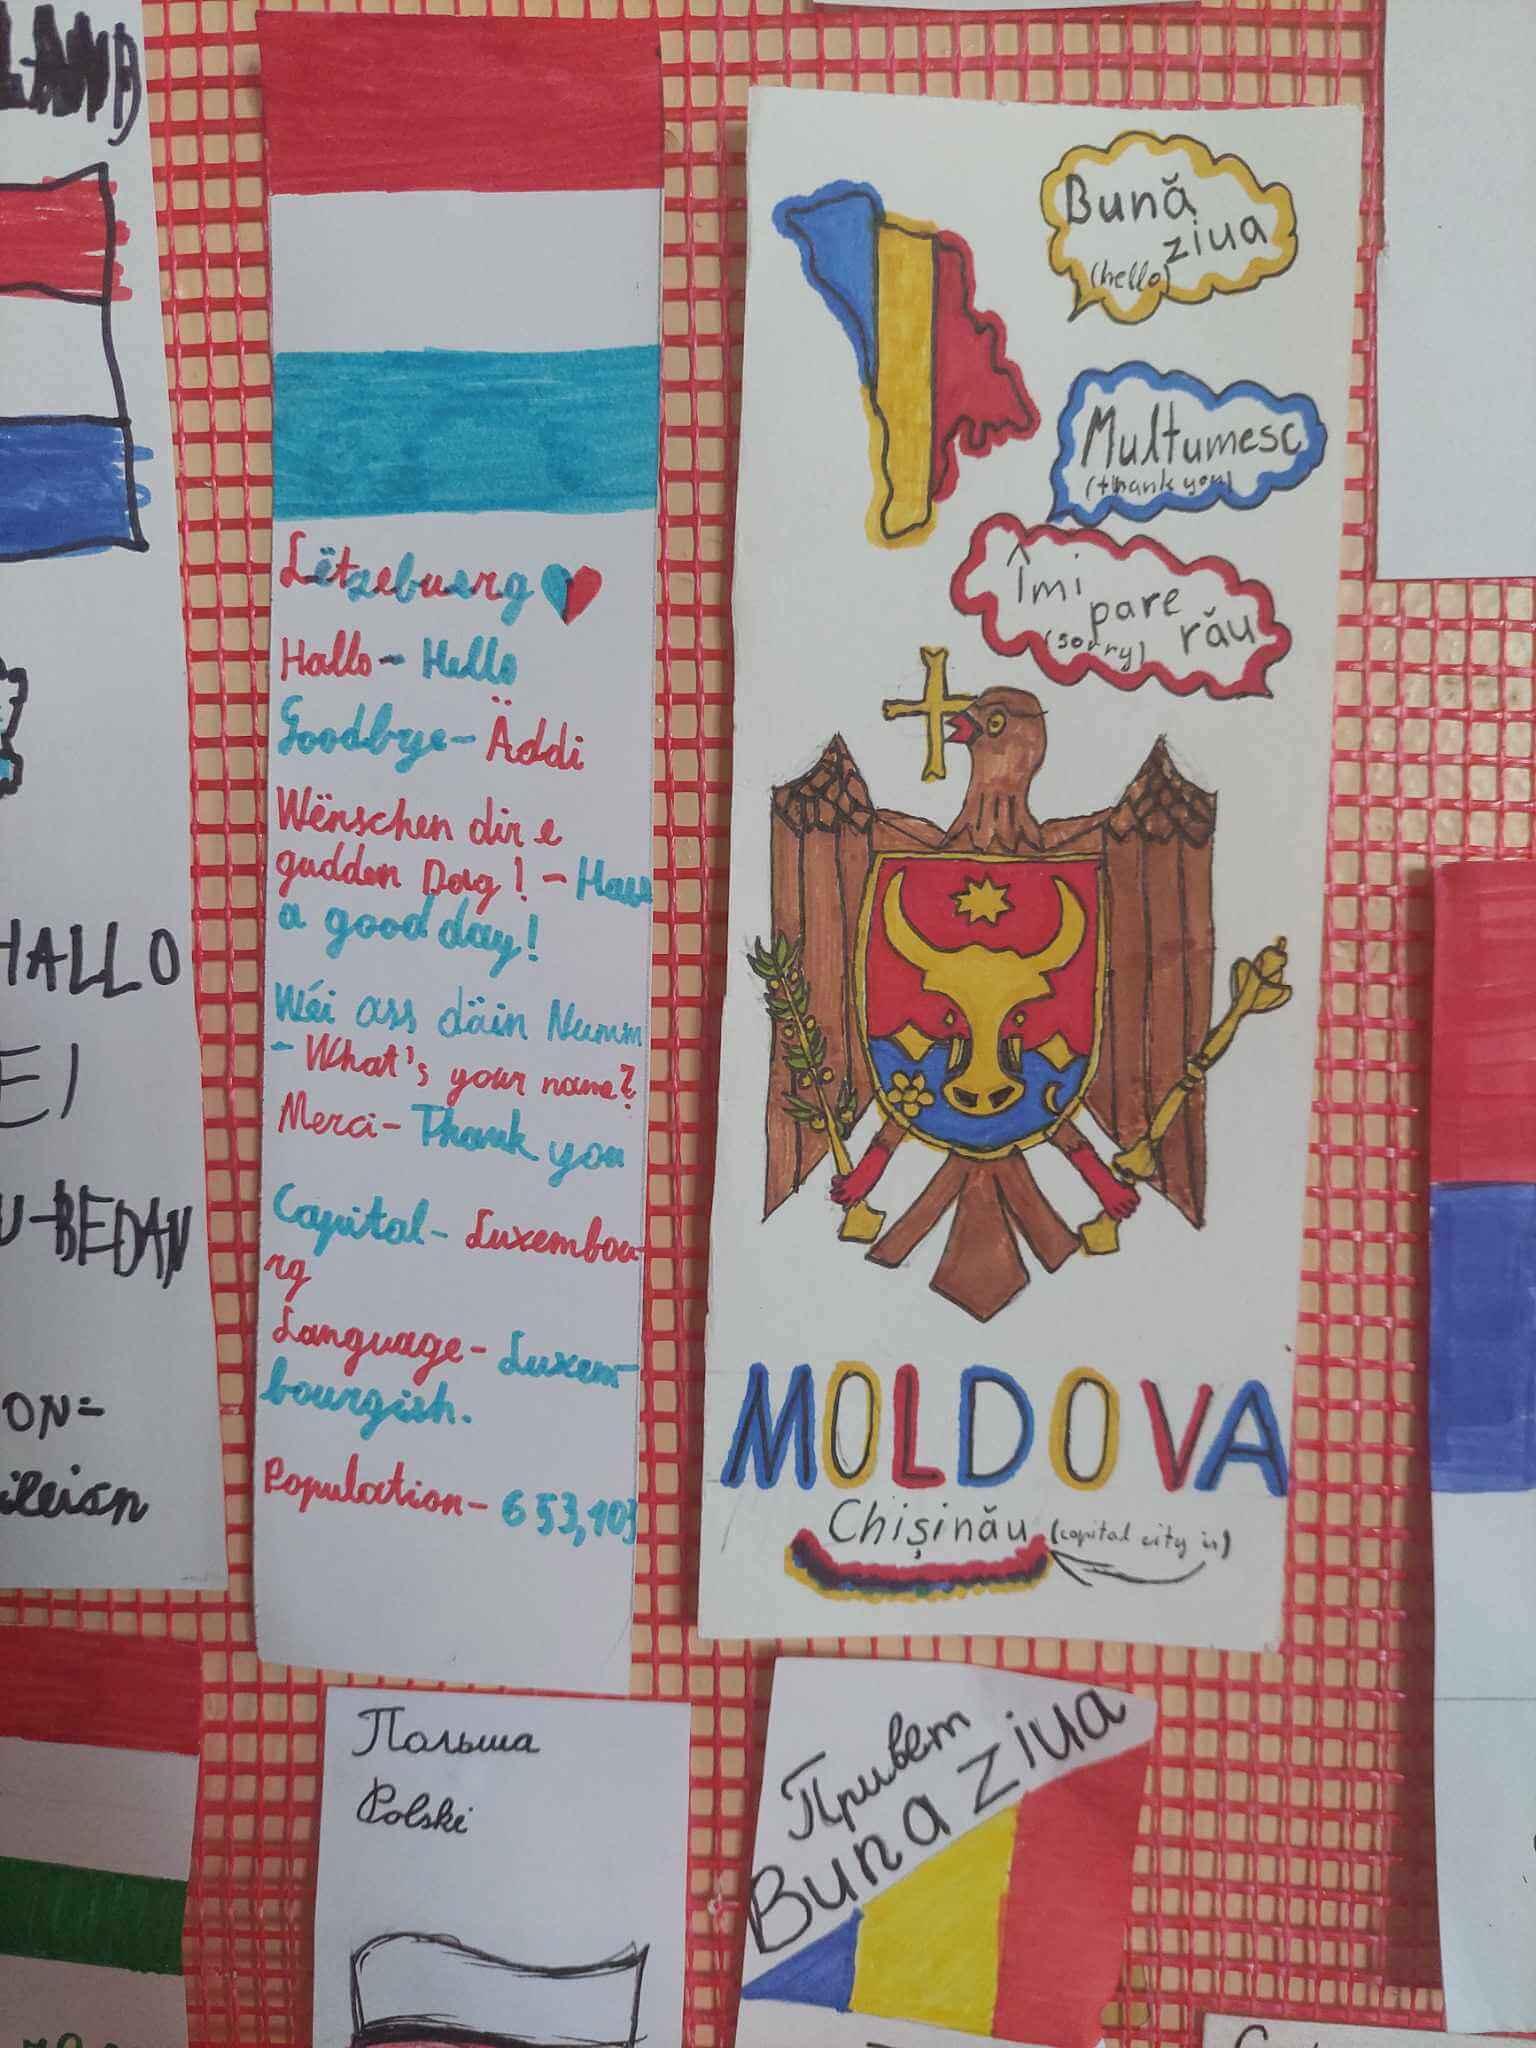 HALLO
Lëtzebuerg
Hallo - Hello
Goodbye - Äddi
Wënschen dir e
gudden Dag! - Have
a good day!
Wéi ass däin Numm
- What's your name?
Merci - Thank you
Capital - Luxembou-
rg
Language - Luxem-
bourgish.
Population - 653,103
Bună
ziua
(hello)
Multumesc
(thank you)
Îmi
pare
rău
(sorry)
MOLDOVA
Chișinău (capital city is)
Польша
Polski
Привет
Buna ziua